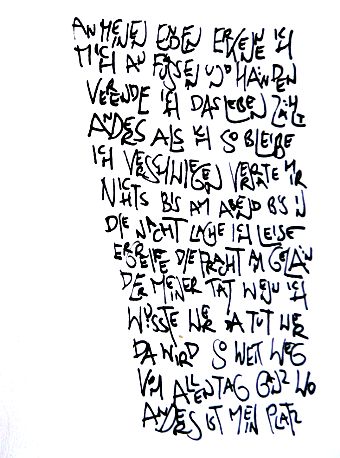 AN MEINEN ENDEN ERKENNE ICH
MICH AN FÜSSEN UND HÄNDEN
VERENDE ICH DAS LEBEN ZÄHLT
ANDERS ALS ICH SO BLEIBE
ICH VERSCHWIEGEN VERRATE MIR
NICHTS BIS AM ABEND BIS IN
DIE NACHT LACHE ICH LEISE
ERGREIFE DIE PRACHT AM GELÄN
DER MEINER TAT WENN ICH
WÜSSTE WER DA TUT WER
DA WIRD SO WEIT WEG
VOM ALLENTAG GANZ WO
ANDERS IST MEIN PLATZ